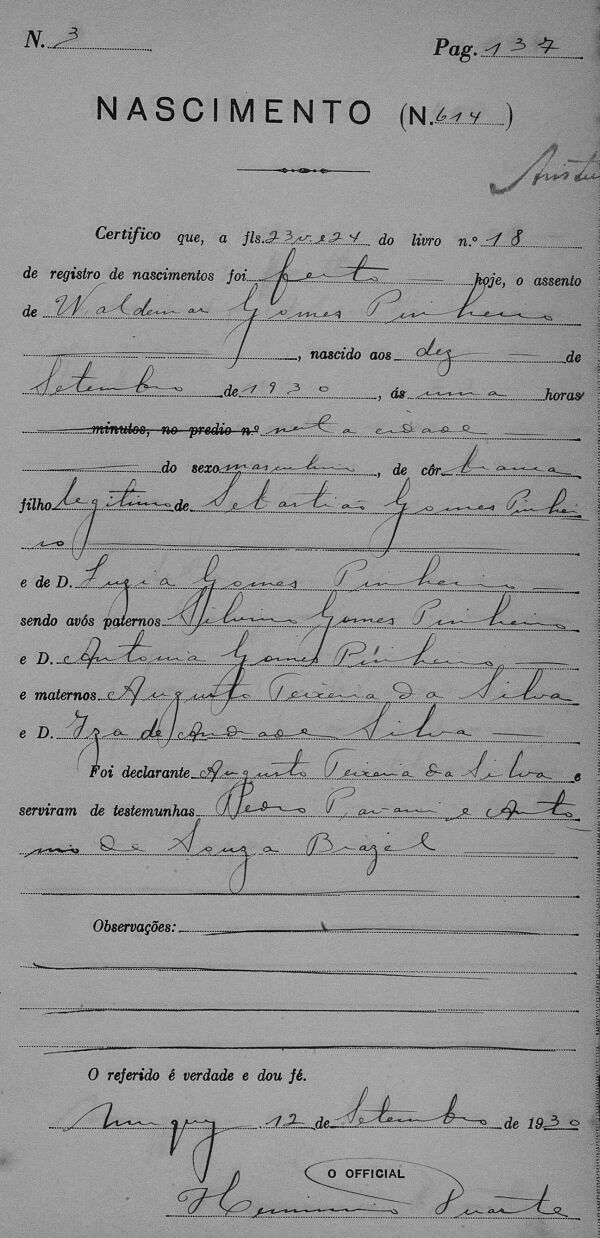 N. 3
Pag. 137
NASCIMENTO (N. 614)
Certifico que, a fls. 23 v e 24 do livro n.º 18
de registro de nascimentos foi feito hoje, o assento
de Waldemar Gomes Pinheiro
, nascido aos dez de
Setembro de 1930, ás uma horas
minutos, no predio n.º nesta cidade
do sexo masculino, de côr branca
filho legitimo de Sebastião Gomes Pinhei
ro
e de D. Luzia Gomes Pinheiro
sendo avós paternos Silvino Gomes Pinheiro
e D. Antonia Gomes Pinheiro
e maternos Augusto Teixeira da Silva
e D. Iza de Andrade Silva
Foi declarante Augusto Teixeira da Silva e
serviram de testemunhas Pedro Pavani e Anto
nio de Souza Brazil
Observações:
O referido é verdade e dou fé.
12 de Setembro de 1930
O OFFICIAL
Duarte